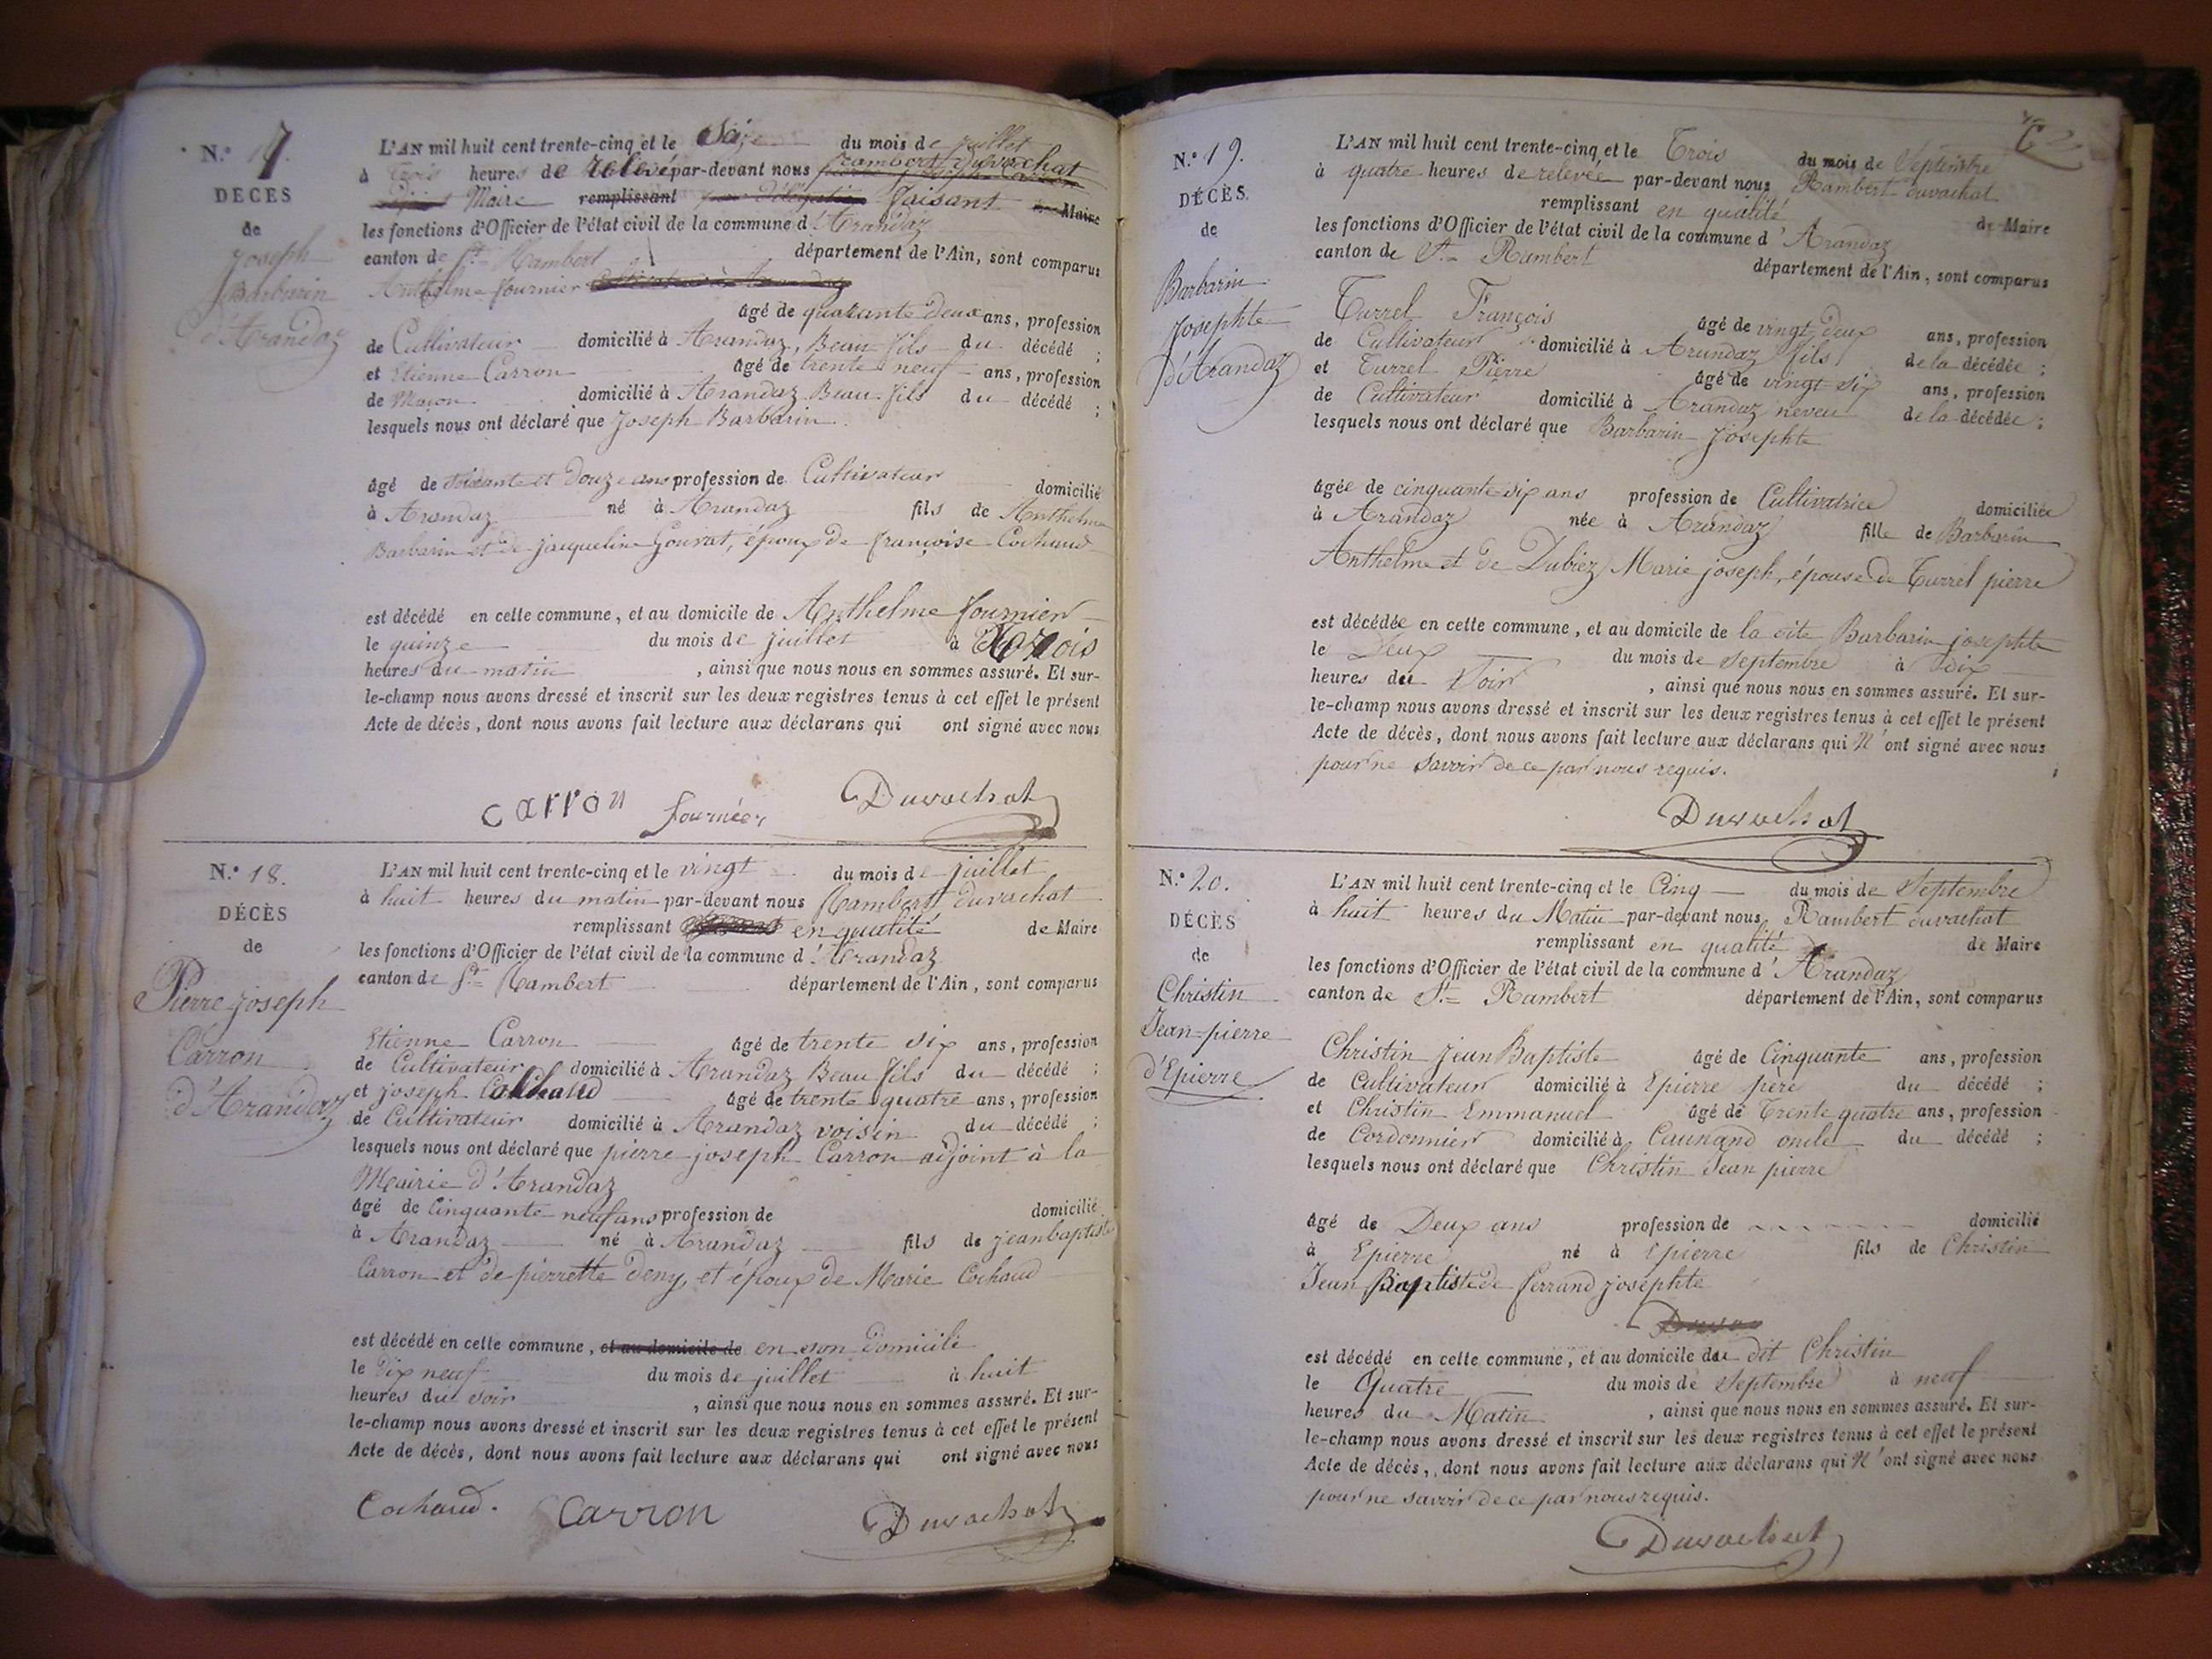 N.° 17.
DÉCÈS
de
Joseph
Barbarin
d'Arandaz
L'AN mil huit cent trente-cinq et le Seize du mois de juillet
à trois heures de relevé par-devant nous rambert duvachat
Maire remplissant faisant Maire
les fonctions d'Officier de l'état civil de la commune d'Arandaz
canton de St. Rambert département de l'Ain, sont comparus
Anthelme fournier
âgé de quarante deux ans, profession
de Cultivateur domicilié à Arandaz, Beau fils du décédé ;
et Etienne Carron âgé de trente neuf ans, profession
de Maçon domicilié à Arandaz Beau fils du décédé ;
lesquels nous ont déclaré que Joseph Barbarin
âgé de soixante et Douze ans profession de Cultivateur domicilié
à Arandaz né à Arandaz fils de Anthelme
Barbarin et de jacqueline Gouvat, époux de françoise Cochaud
est décédé en cette commune, et au domicile de Anthelme fournier
le quinze du mois de juillet à
heures du matin, ainsi que nous nous en sommes assuré. Et sur-
le-champ nous avons dressé et inscrit sur les deux registres tenus à cet effet le présent
Acte de décès, dont nous avons fait lecture aux déclarans qui ont signé avec nous
carron fournier Duvachat
N.° 18.
DÉCÈS
de
Pierre joseph
Carron
d'Arandaz
L'AN mil huit cent trente-cinq et le vingt du mois de juillet
à huit heures du matin par-devant nous Rambert duvachat
remplissant en qualité de Maire
les fonctions d'Officier de l'état civil de la commune d'Arandaz
canton de St. Rambert département de l'Ain, sont comparus
Etienne Carron âgé de trente six ans, profession
de Cultivateur domicilié à Arandaz Beau fils du décédé ;
et joseph Cochaud âgé de trente quatre ans, profession
de Cultivateur domicilié à Arandaz voisin du décédé ;
lesquels nous ont déclaré que pierre joseph Carron adjoint à la
Mairie d'Arandaz
âgé de Cinquante neuf ans profession de domicilié
à Arandaz né à Arandaz fils de jean baptiste
Carron et de pierrette Deny, et époux de Marie Cochaud
est décédé en cette commune, et au domicile de en son domicile
le Dix neuf du mois de juillet à huit
heures du soir, ainsi que nous nous en sommes assuré. Et sur-
le-champ nous avons dressé et inscrit sur les deux registres tenus à cet effet le présent
Acte de décès, dont nous avons fait lecture aux déclarans qui ont signé avec nous
Cochaud. Carron Duvachat
N.° 19.
DÉCÈS.
de
Barbarin
Josephte
d'Arandaz
L'AN mil huit cent trente-cinq et le Trois du mois de Septembre
à quatre heures de relevée par-devant nous Rambert duvachat
remplissant en qualité de Maire
les fonctions d'Officier de l'état civil de la commune d'Arandaz
canton de St. Rambert département de l'Ain, sont comparus
Turrel François âgé de vingt deux ans, profession
de Cultivateur domicilié à Arandaz fils de la décédée ;
et Turrel Pierre âgé de vingt six ans, profession
de Cultivateur domicilié à Arandaz neveu de la décédée ;
lesquels nous ont déclaré que Barbarin Josephte
âgée de cinquante six ans profession de Cultivatrice domiciliée
à Arandaz née à Arandaz fille de Barbarin
Anthelme et de Dubiez Marie joseph, épouse de Turrel pierre
est décédée en cette commune, et au domicile de la dite Barbarin josephte
le Deux du mois de septembre à dix
heures du Soir, ainsi que nous nous en sommes assuré. Et sur-
le-champ nous avons dressé et inscrit sur les deux registres tenus à cet effet le présent
Acte de décès, dont nous avons fait lecture aux déclarans qui n'ont signé avec nous
pour ne savoir de ce par nous requis.
Duvachat
N.° 20.
DÉCÈS
de
Christin
Jean-pierre
d'Epierre
L'AN mil huit cent trente-cinq et le Cinq du mois de Septembre
à huit heures du Matin par-devant nous Rambert duvachat
remplissant en qualité de Maire
les fonctions d'Officier de l'état civil de la commune d'Arandaz
canton de St. Rambert département de l'Ain, sont comparus
Christin Jean Baptiste âgé de Cinquante ans, profession
de Cultivateur domicilié à Epierre père du décédé ;
et Christin Emmanuel âgé de Trente quatre ans, profession
de Cordonnier domicilié à oncle du décédé ;
lesquels nous ont déclaré que Christin Jean pierre
âgé de Deux ans profession de domicilié
à Epierre né à Epierre fils de Christin
Jean Baptiste de ferrand josephte
est décédé en cette commune, et au domicile du dit Christin
le Quatre du mois de Septembre à neuf
heures du Matin, ainsi que nous nous en sommes assuré. Et sur-
le-champ nous avons dressé et inscrit sur les deux registres tenus à cet effet le présent
Acte de décès, dont nous avons fait lecture aux déclarans qui n'ont signé avec nous
pour ne savoir de ce par nous requis.
Duvachat